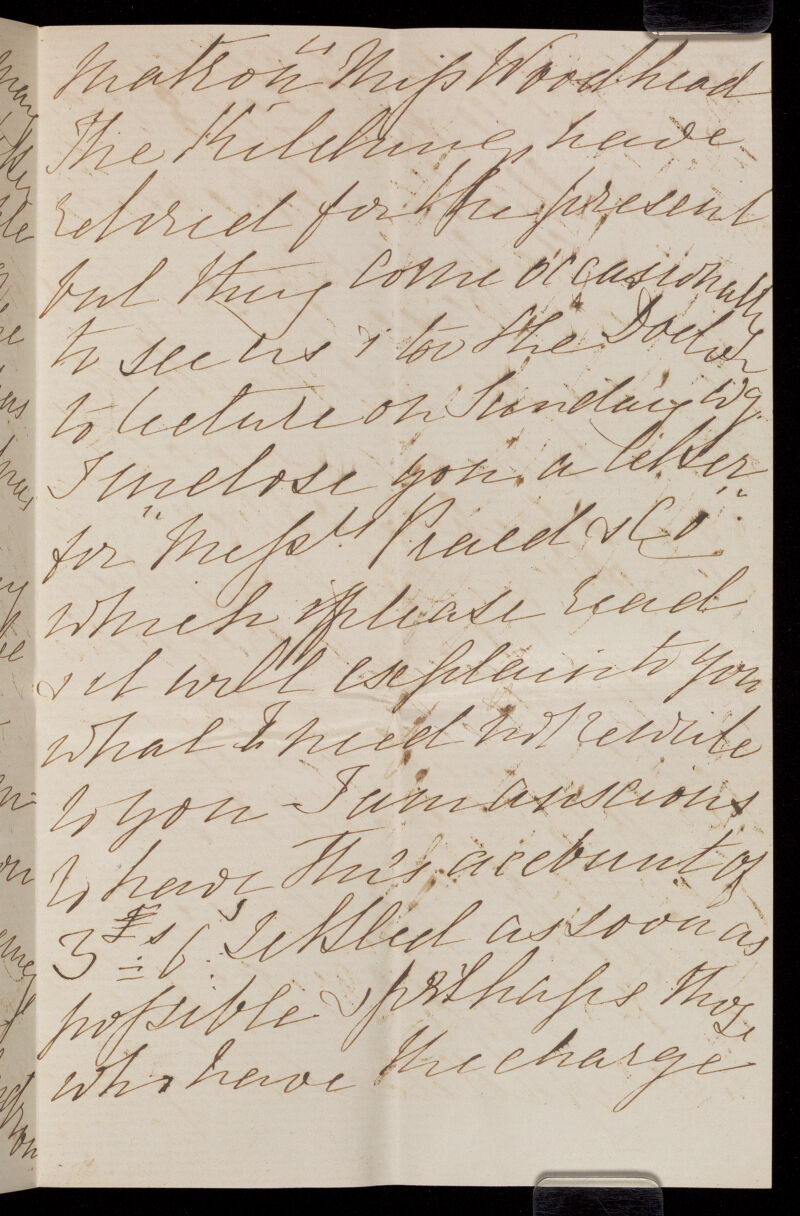 matron" Miss Woodhead
The Kilchings have
retired for the present
but they come occasionally
to see us & too the Doctor
to lecture on Sunday
I inclose you a letter
for "Messrs Praed & Co"
which please read
& it will explain to you
what I need not rewrite
to you - I am anxious
to have this account of
3£ 6s settled as soon as
possible & perhaps those
who have the charge